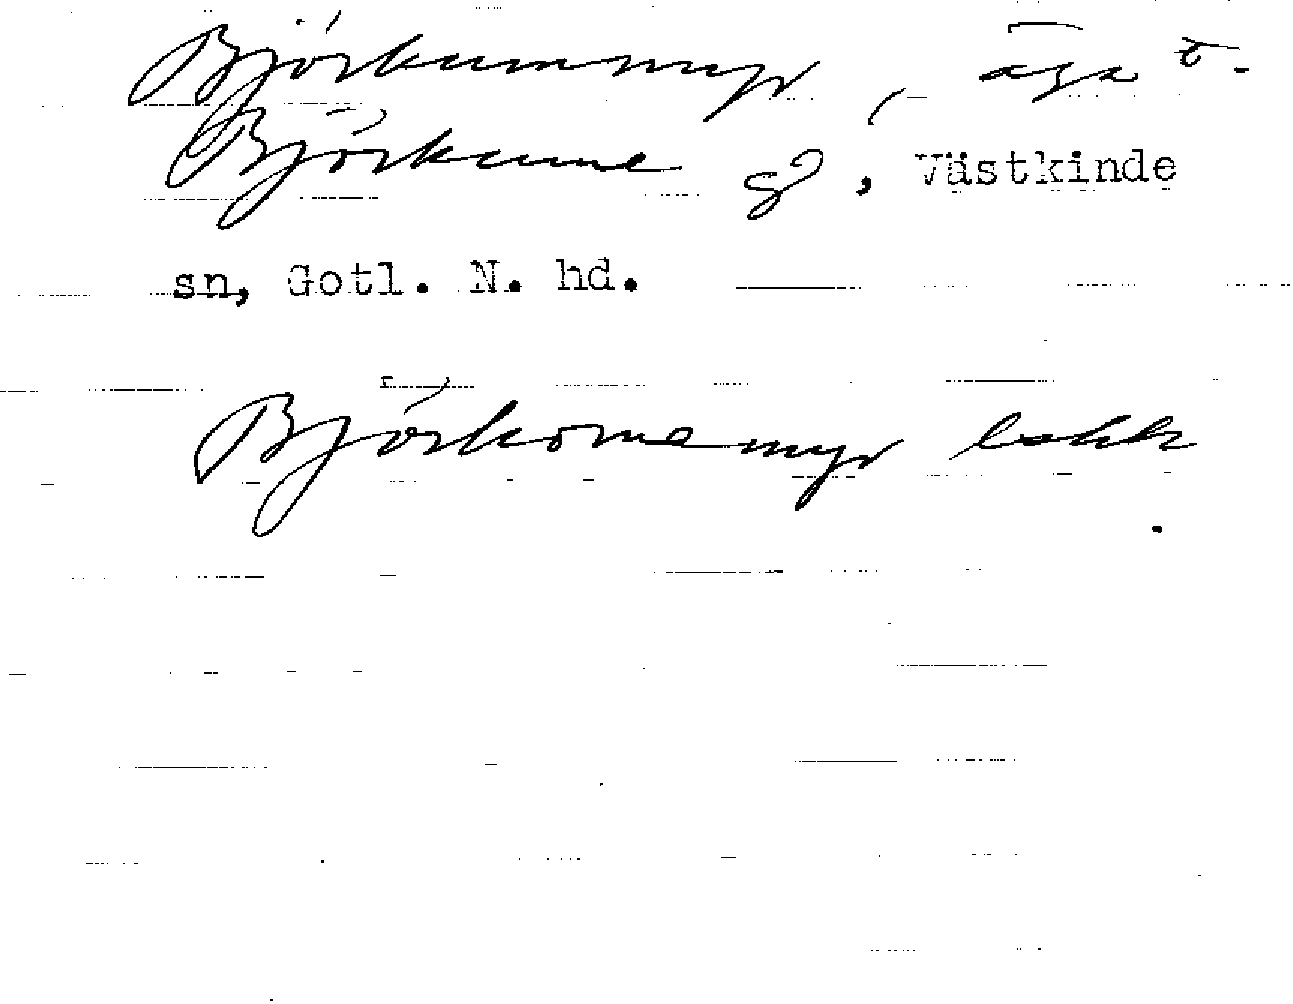 Björkummmyr, äga ö.
Björkume gd, Västkinde
sn, Gotl. N. hd.
Björkomemyr lokk